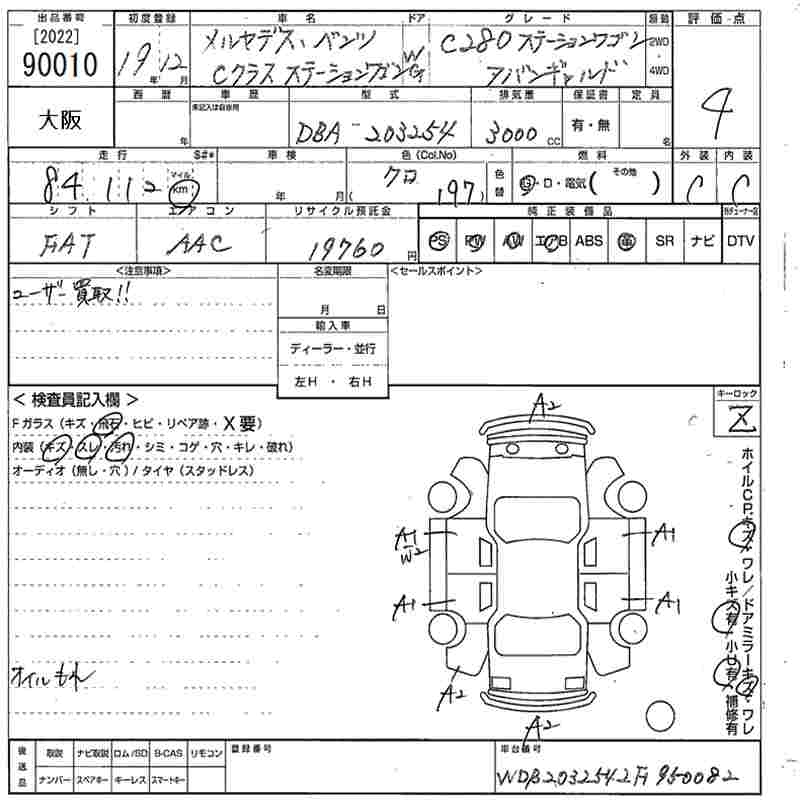 出品番号 初度登録 車名 ドア グレード 駆動 評価点
[2022]
90010
19年 12月
メルセデス・ベンツ
Cクラス ステーションワゴン
W
C280 ステーションワゴン
アバンギャルド
2WD
・
4WD
4
大阪
西暦 車歴 型式 排気量 保証書 定員
未記入は自家用
年 DBA-203254 3000cc 有・無 名
走行 S#* 車検 色(Col.No) 燃料 外装 内装
84,112 マイル km 年 月 クロ (197) 色替 G・D・電気( その他 ) C C
シフト エアコン リサイクル預託金 純正装備品
FAT AAC 19760円 PS PW AW エアB ABS 革 SR ナビ DTV
<注意事項> 名変期限 <セールスポイント>
ユーザー買取!!
月 日
輸入車
ディーラー・並行
左H ・ 右H
< 検査員記入欄 >
Fガラス (キズ・飛石・ヒビ・リペア跡・X要)
内装 (キズ・スレ・汚れ・シミ・コゲ・穴・キレ・破れ)
オーディオ (無し・穴) / タイヤ (スタッドレス)
オイルもれ
キーロック
Z
A2
A1
W2
A1
A1
A1
A2
A2
ホイルCP.キズ・ワレ/ドアミラーキズ・ワレ
小キズ有/小U有/補修有
後送品 取説 ナビ取説 ロム/SD B-CAS リモコン 登録番号 車台番号
ナンバー スペアキー キーレス スマートキー
WDB2032542F950082